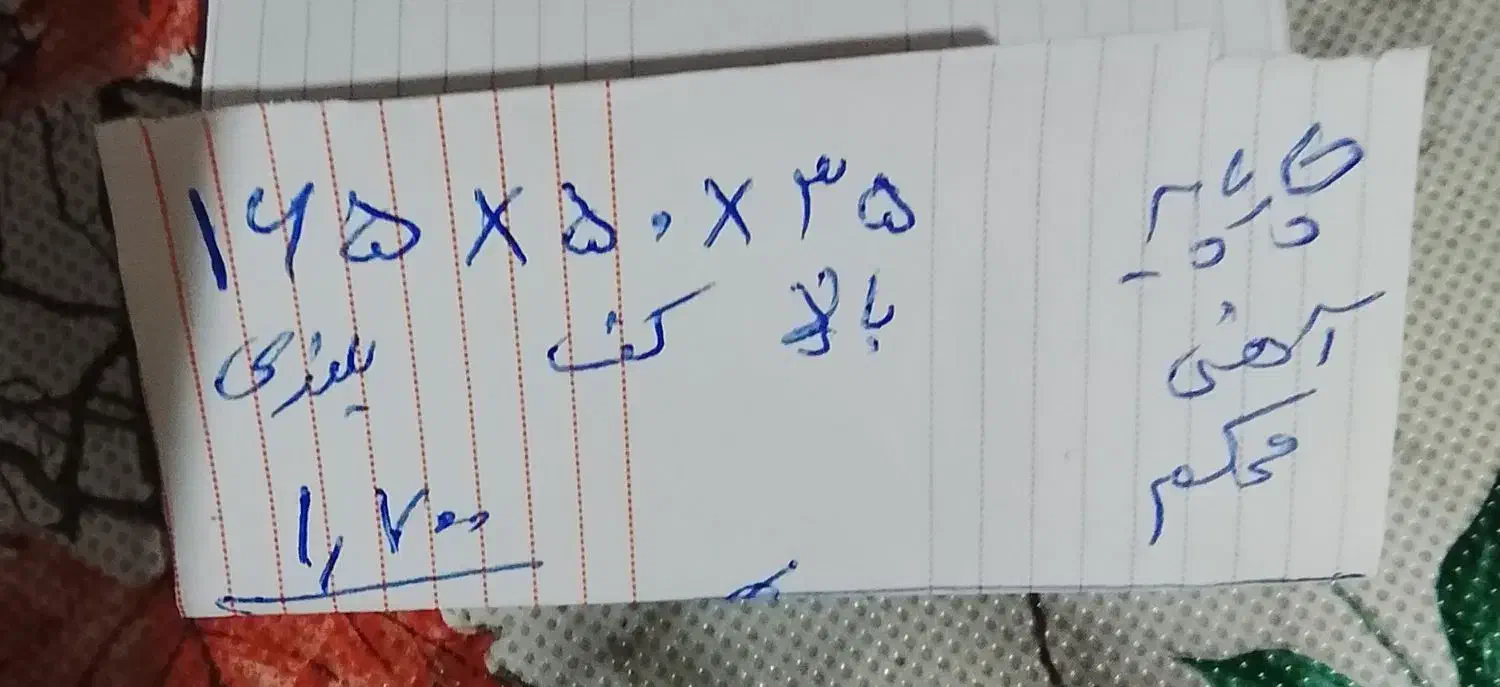 ۱۶۵ × ۵۰ × ۳۵
بالا کف بلندی
۱,۷۰۰
آهنی
محکم